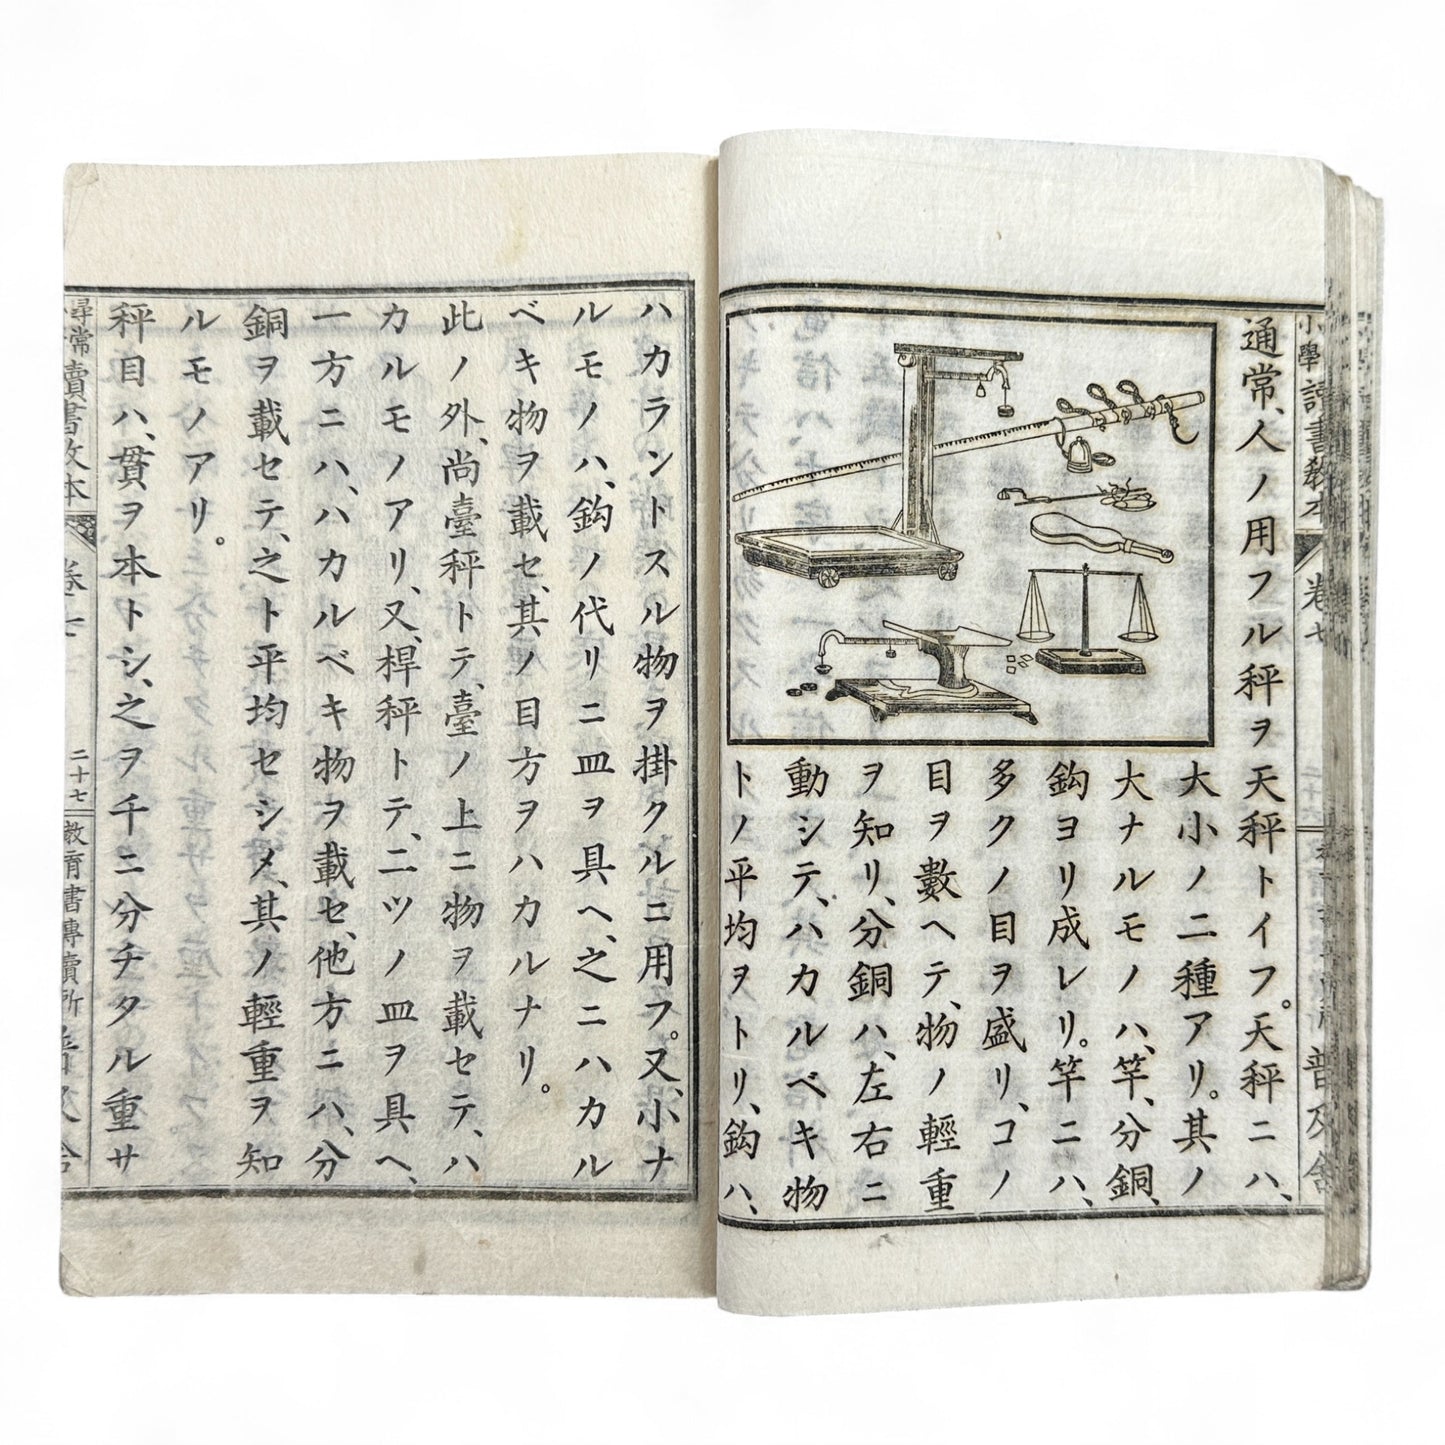 通常、人ノ用フル秤ヲ天秤トイフ。天秤ニハ、
大小ノ二種アリ。其ノ
大ナルモノハ、竿、分銅、
鈎ヨリ成レリ。竿ニハ、
多クノ目ヲ盛リ、コノ
目ヲ數ヘテ、物ノ輕重
ヲ知リ、分銅ハ、左右ニ
動シテ、ハカルベキ物
トノ平均ヲトリ、鈎ハ、
ハカラントスル物ヲ掛クルニ用フ。又、小ナ
ルモノハ、鈎ノ代リニ皿ヲ具ヘ、之ニハカル
ベキ物ヲ載セ、其ノ目方ヲハカルナリ。
此ノ外、尚臺秤トテ、臺ノ上ニ物ヲ載セテ、ハ
カルモノアリ、又、桿秤トテ、二ツノ皿ヲ具ヘ、
一方ニハ、ハカルベキ物ヲ載セ、他方ニハ、分
銅ヲ載セテ、之ト平均セシメ、其ノ輕重ヲ知
ルモノアリ。
秤目ハ、貫ヲ本トシ、之ヲ千ニ分チタル重サ
尋常讀書教本 卷七 二十七 教育書專賣所 普及舍
小學讀書教本 卷七 普及舍